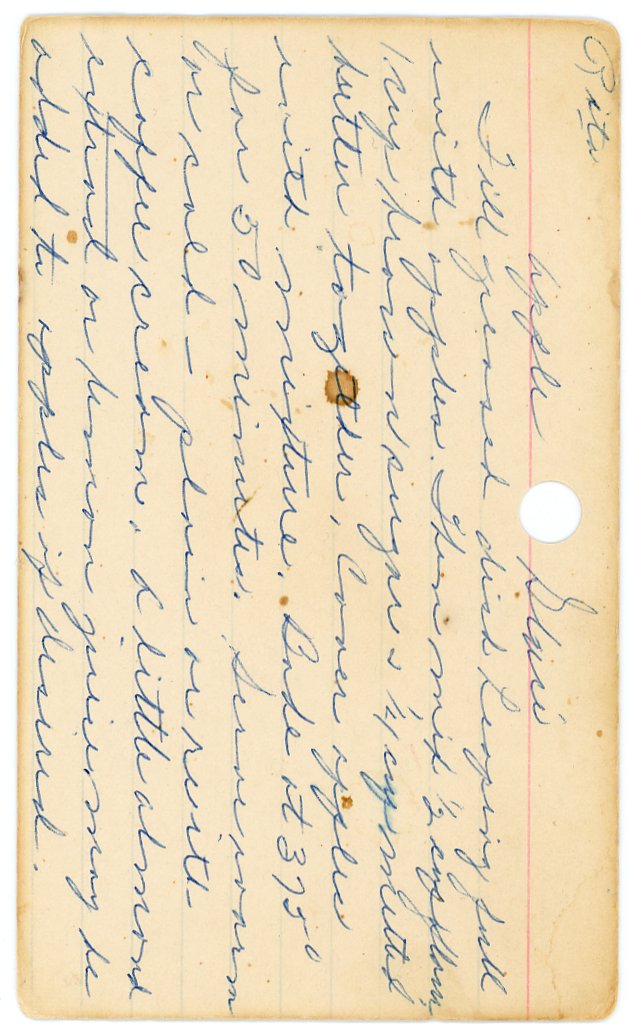 Rita
Apple Slice
Fill greased dish heaping full
with apples. Then mix ½ cup flour,
1 cup brown sugar & ¼ cup melted
butter together, Cover apples
with mixture. Bake at 375°
for 30 minutes. Serve warm
or cold - plain or with
coffee cream. A little almond
extract or lemon juice may be
added to apples if desired.